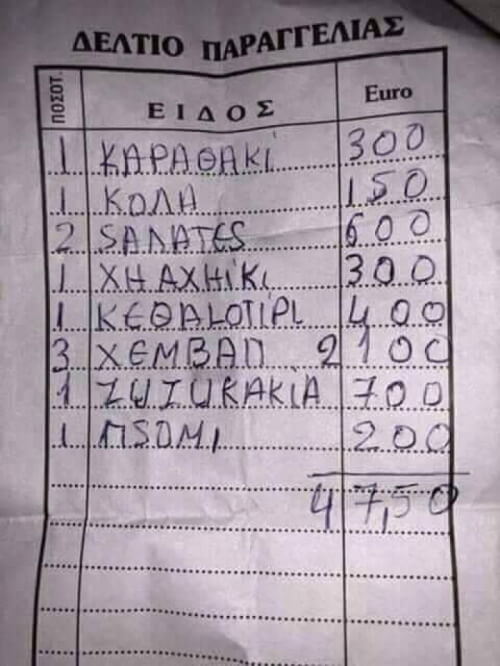 ΔΕΛΤΙΟ ΠΑΡΑΓΓΕΛΙΑΣ
ΠΟΣΟΤ. ΕΙΔΟΣ Euro
1 ΚΑΡΑΘΑΚί 300
1 ΚΟΛΑ 150
2 SΑΛΑΤΕS 600
1 ΧΗΑΧΗίΚι 300
1 ΚΕΘΑLΟΤίΡι 400
3 ΧΕΜΒΑΠ 2100
1 ZUZURAKIA 700
1 ΠSΟΜΙ 200
47,50